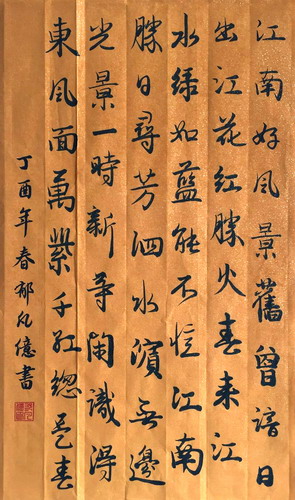 江南好風景舊曾諳日
出江花紅勝火春来江
水緑如藍能不憶江南
勝日尋芳泗水濱无邊
光景一時新等閑識得
東風面萬紫千紅總是春
丁酉年春郁凡億書